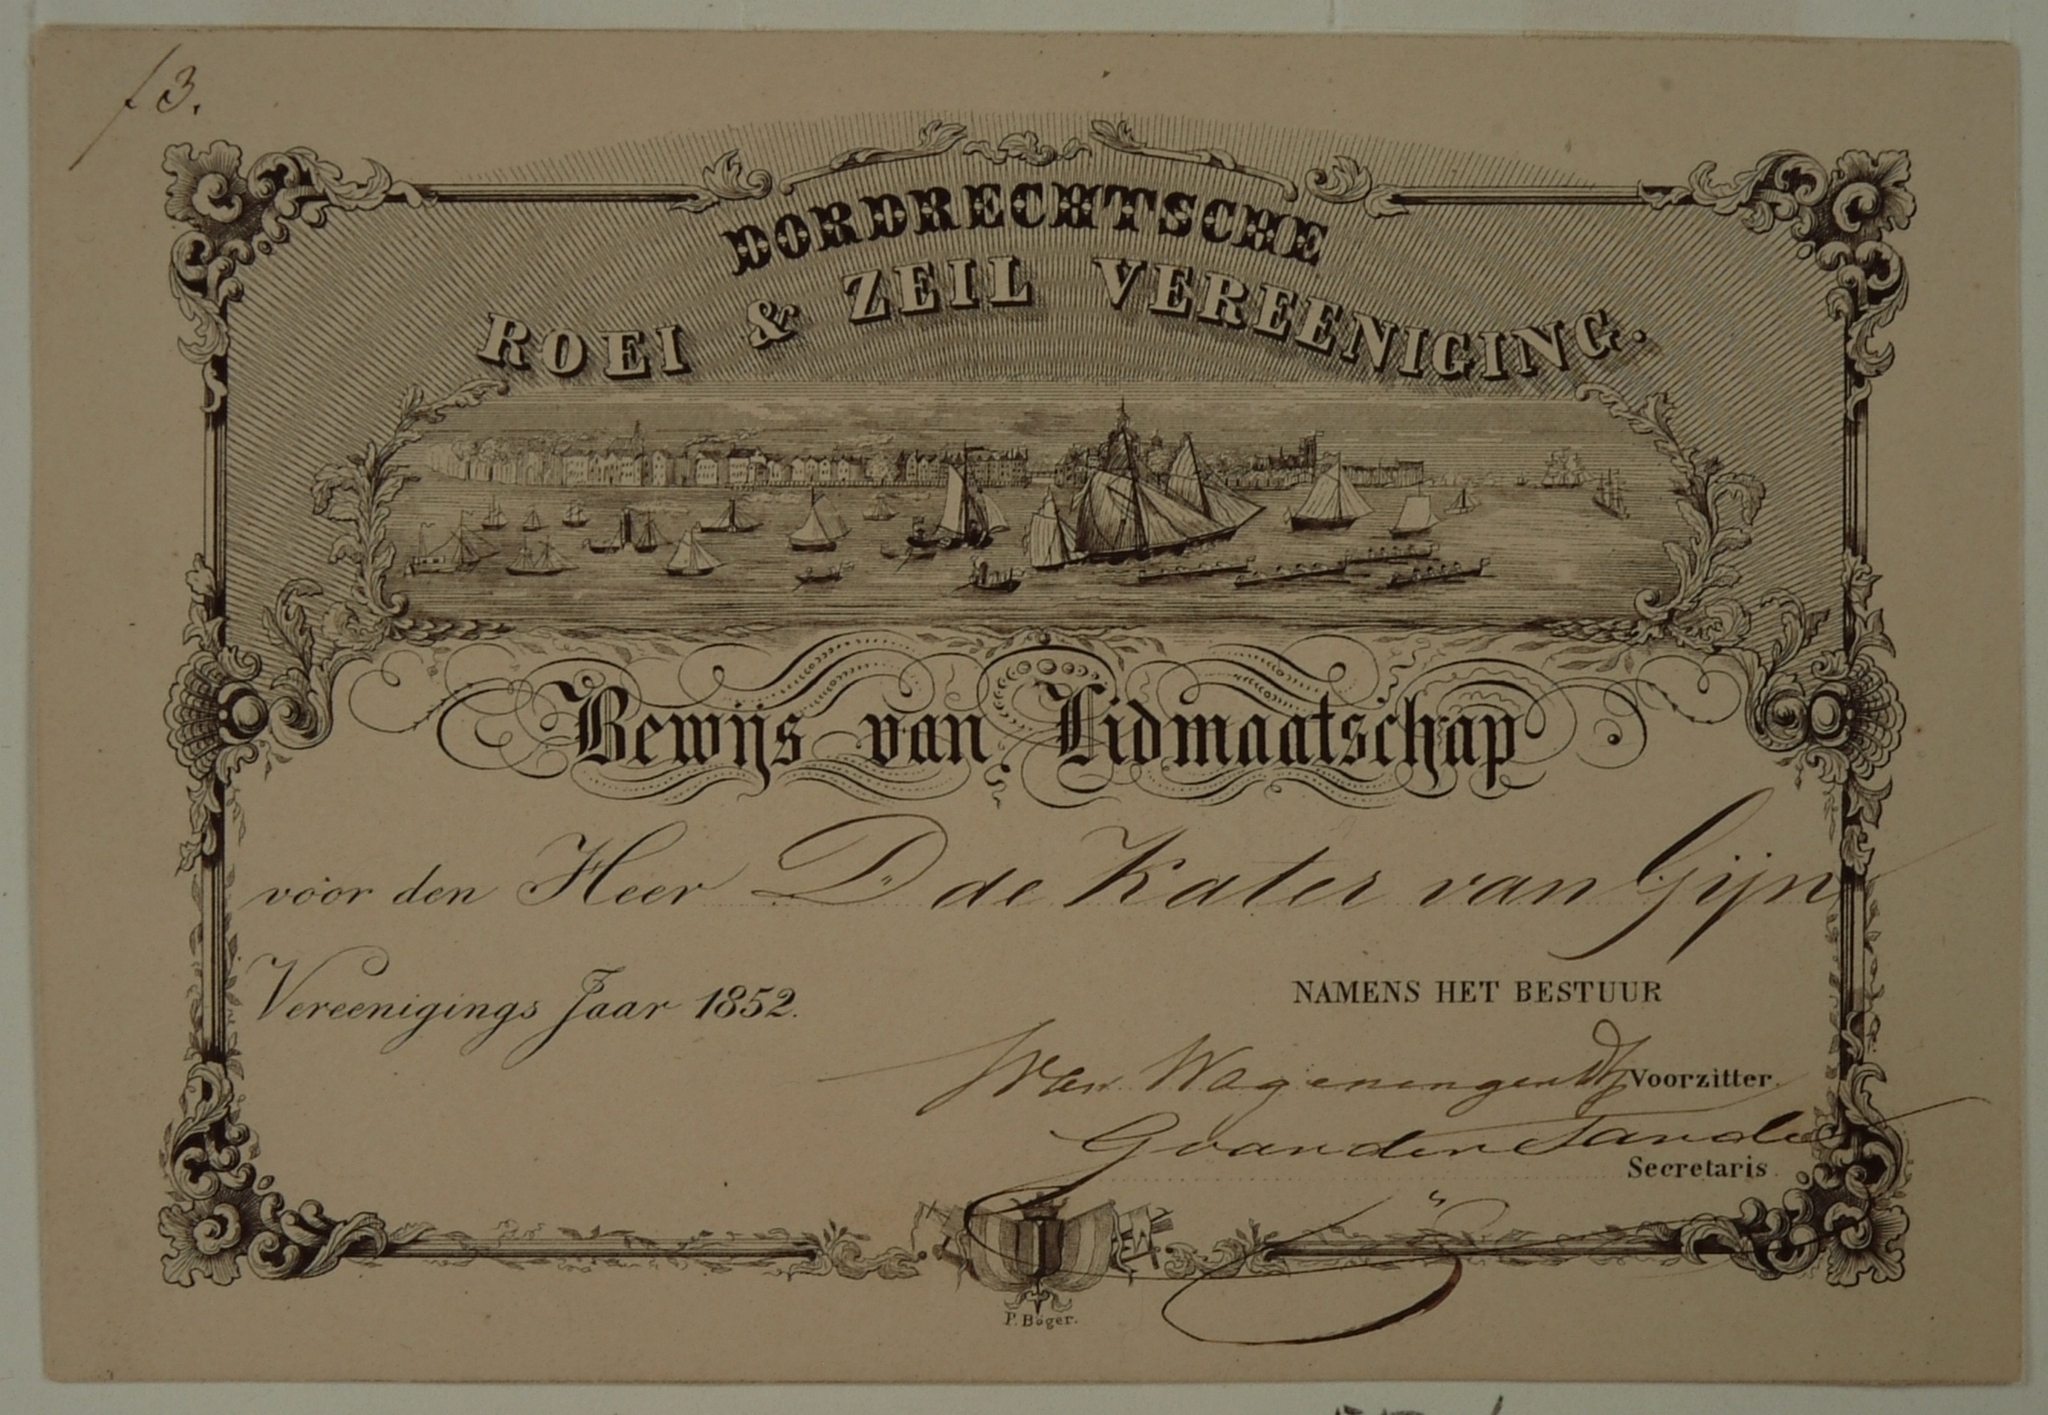 f 3.
DORDRECHTSCHE
ROEI & ZEIL VEREENIGING.
Bewijs van Lidmaatschap
voor den Heer D de Kater van Gijn
Vereenigings Jaar 1852.
NAMENS HET BESTUUR
van Wageningen Voorzitter.
G van der Sande
Secretaris.
P. Böger.